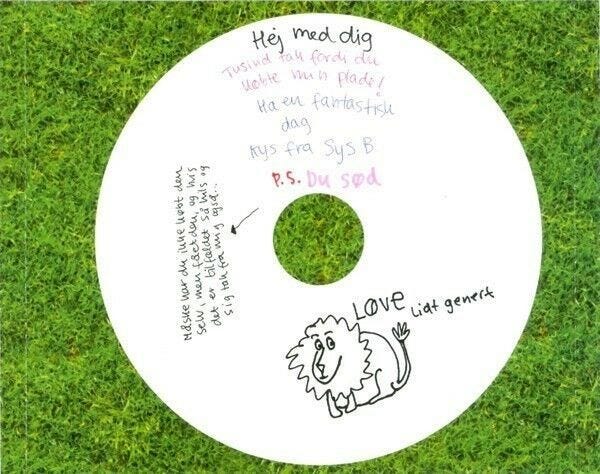 Hej med dig
Tusind tak fordi du
købte min plade!
Ha en fantastisk
dag
Kys fra Sys B
P.S. Du sød
Måske har du ikke købt den
selv, men fået den, og hvis
det er tilfældet så hils og
sig tak fra mig også...
LØVE lidt genert